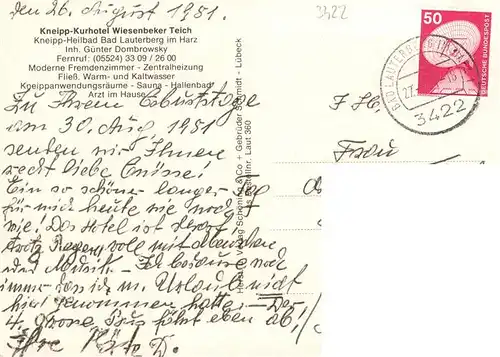 den 26. August 1981.
3422
Kneipp-Kurhotel Wiesenbeker Teich
Kneipp-Heilbad Bad Lauterberg im Harz
Inh. Günter Dombrowsky
Fernruf: (05524) 33 09 / 26 00
Moderne Fremdenzimmer - Zentralheizung
Fließ. Warm- und Kaltwasser
Kneippanwendungsräume - Sauna - Hallenbad
Arzt im Hause
Zu Ihrem Geburtstage
am 30. Aug. 1981
senden wir Ihnen
recht liebe Grüsse!
Ein so schöner langer Tag
für mich heute wie noch
nie! Das Hotel ist
trotz Regen voll mit
und Musik - Ich bedaure noch
immer das ich m. Urlaub nicht
hier genommen hatte. - Der
4. fährt eben ab!
Ihre D.
Verlag Schöning & Co + Gebrüder Schmidt - Lübeck
Bestellnr. Laut 360
50
DEUTSCHE BUNDESPOST
BAD LAUTERBERG IM HARZ
27.
3422
Frau